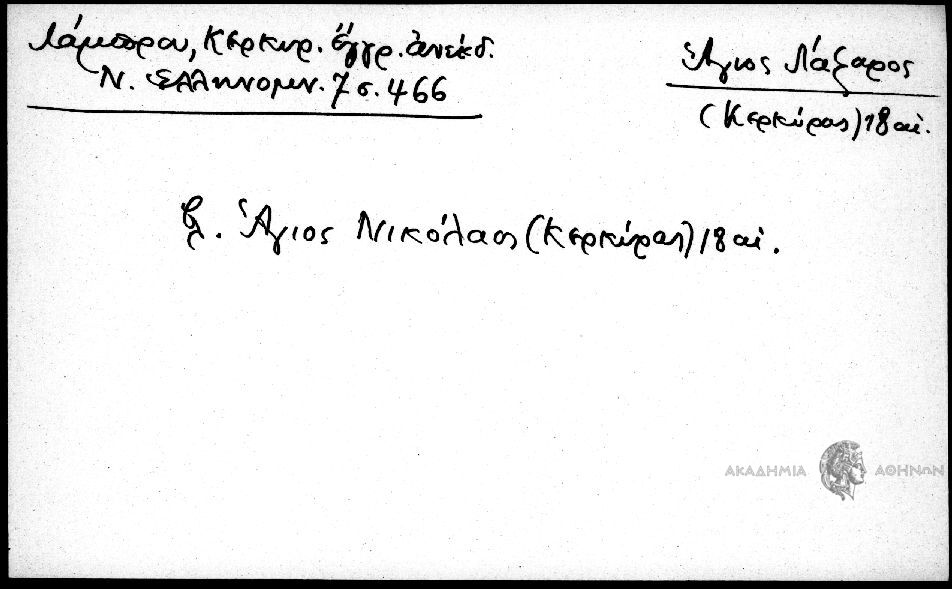 Λάμπρου, Κερκυρ. ἔγγρ. ἀνέκδ.
Ν. Ἑλληνομν. 7 σ. 466
Ἅγιος Λάζαρος
(Κερκύρας) 18 αἰ.
βλ. Ἅγιος Νικόλαος (Κερκύρας) 18 αἰ.
ΑΚΑΔΗΜΙΑ ΑΘΗΝΩΝ